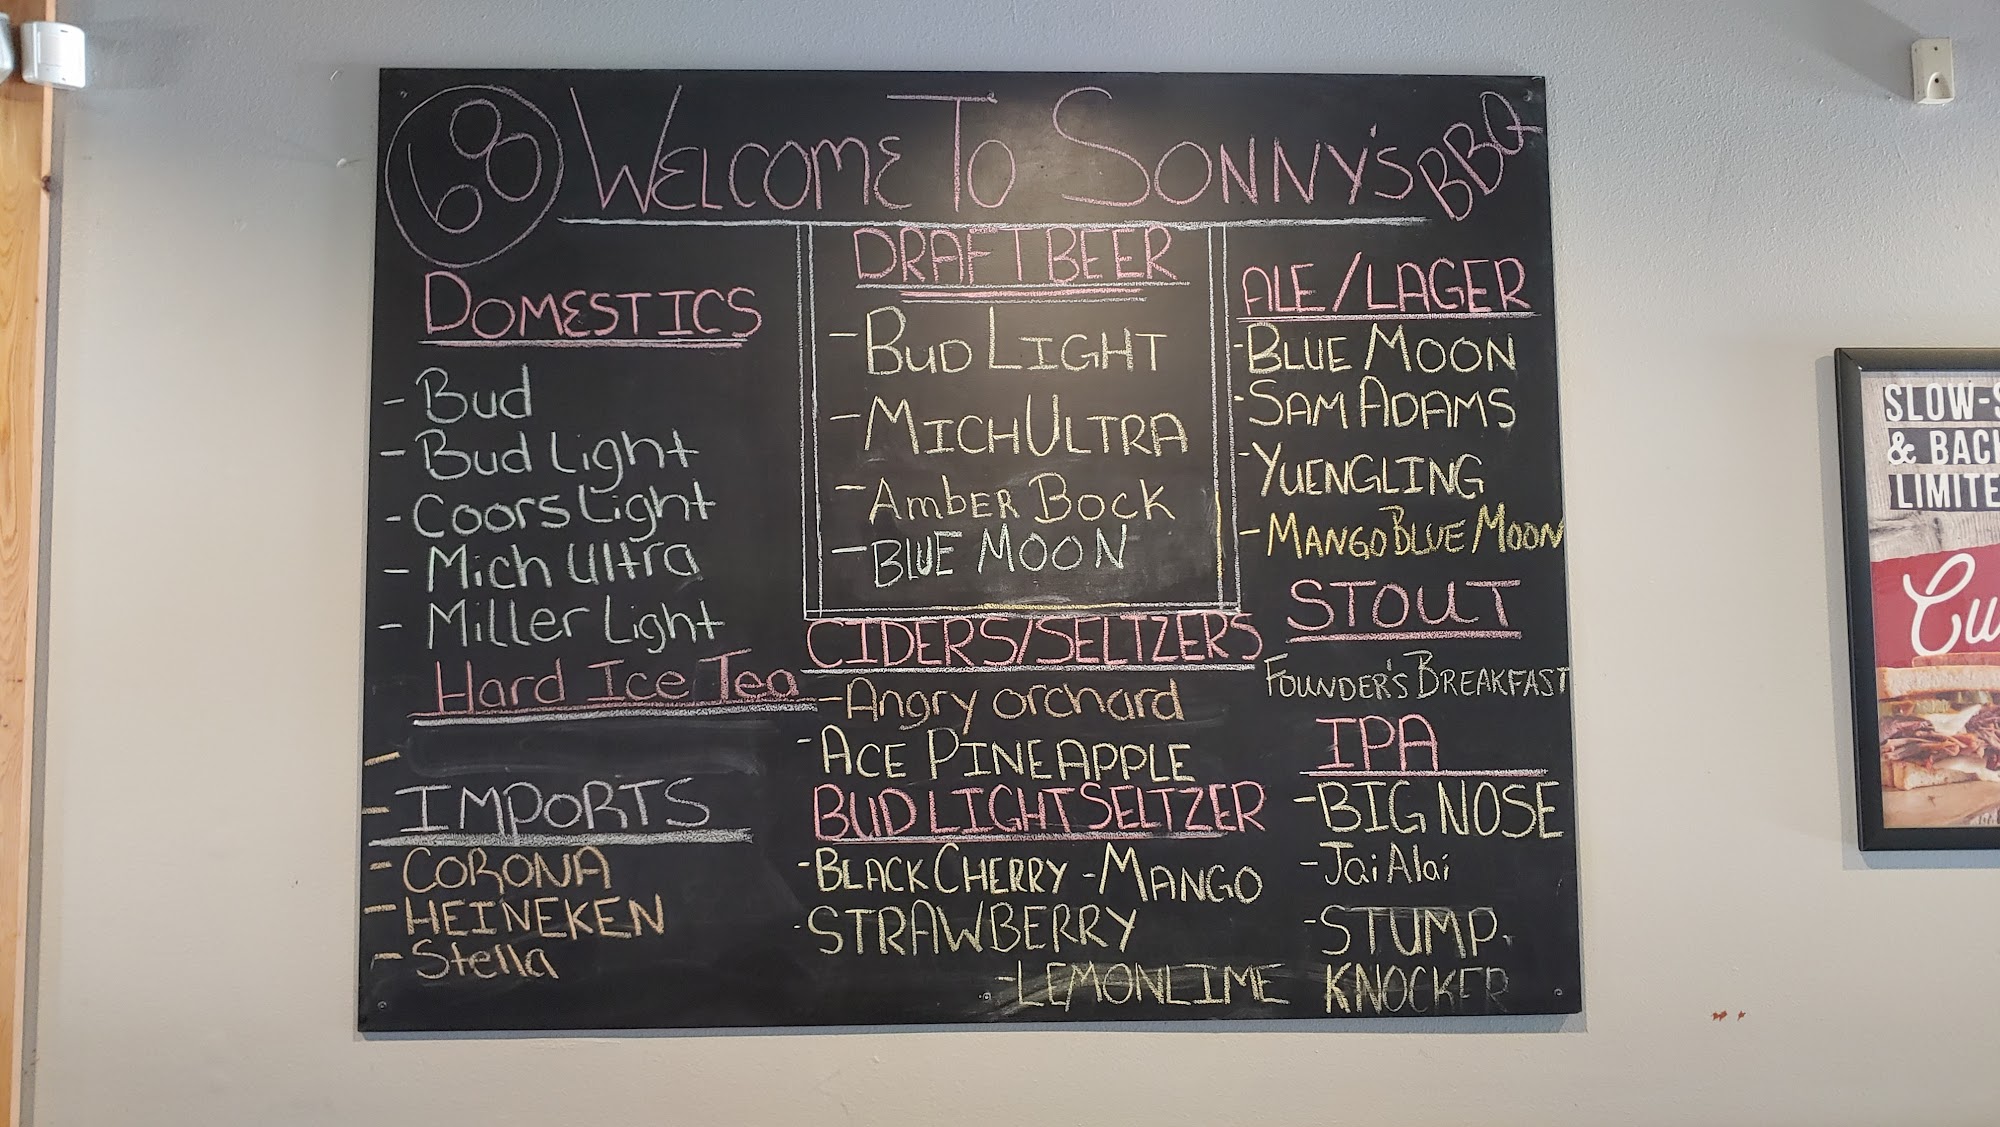 68 WELCOME TO SONNY'S BBQ
DOMESTICS
- Bud
- Bud Light
- Coors Light
- Mich Ultra
- Miller Light
Hard Ice Tea
-
- IMPORTS
- CORONA
- HEINEKEN
- Stella
DRAFT BEER
- BUD LIGHT
- MICH ULTRA
- AMbER BOCK
- BLUE MOON
CIDERS/SELTZERS
- Angry orchard
- ACE PINEAPPLE
BUD LIGHT SELTZER
- BLACK CHERRY - MANGO
- STRAWBERRY
- LEMONLIME
ALE/LAGER
- BLUE MOON
- SAM ADAMS
- YUENGLING
- MANGO BLUE MOON
STOUT
FOUNDER'S BREAKFAST
IPA
- BIG NOSE
- Jai Alai
- STUMP
KNOCKER
SLOW-
& BAC
LIMITE
Cu